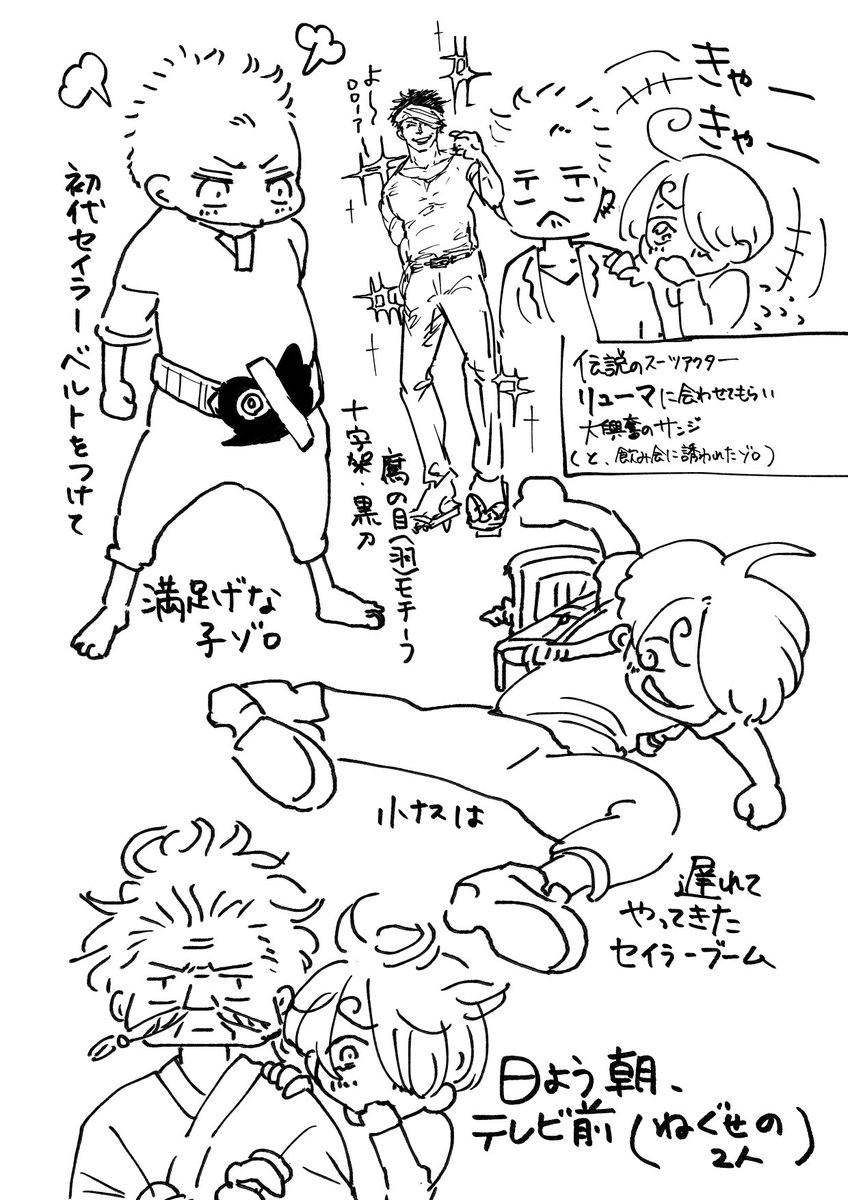 きゃー
きゃー
よ〜
ロロノア
伝説のスーツアクター
リューマに会わせてもらい
大興奮のサンジ
(と、飲み会に誘われたゾロ)
初代セイラーベルトをつけて
満足げな
子ゾロ
鷹の目(羽)モチーフ
十字架・黒刀
小ナスは
遅れて
やってきた
セイラーブーム
日よう朝、
テレビ前(ねぐせの
2人)